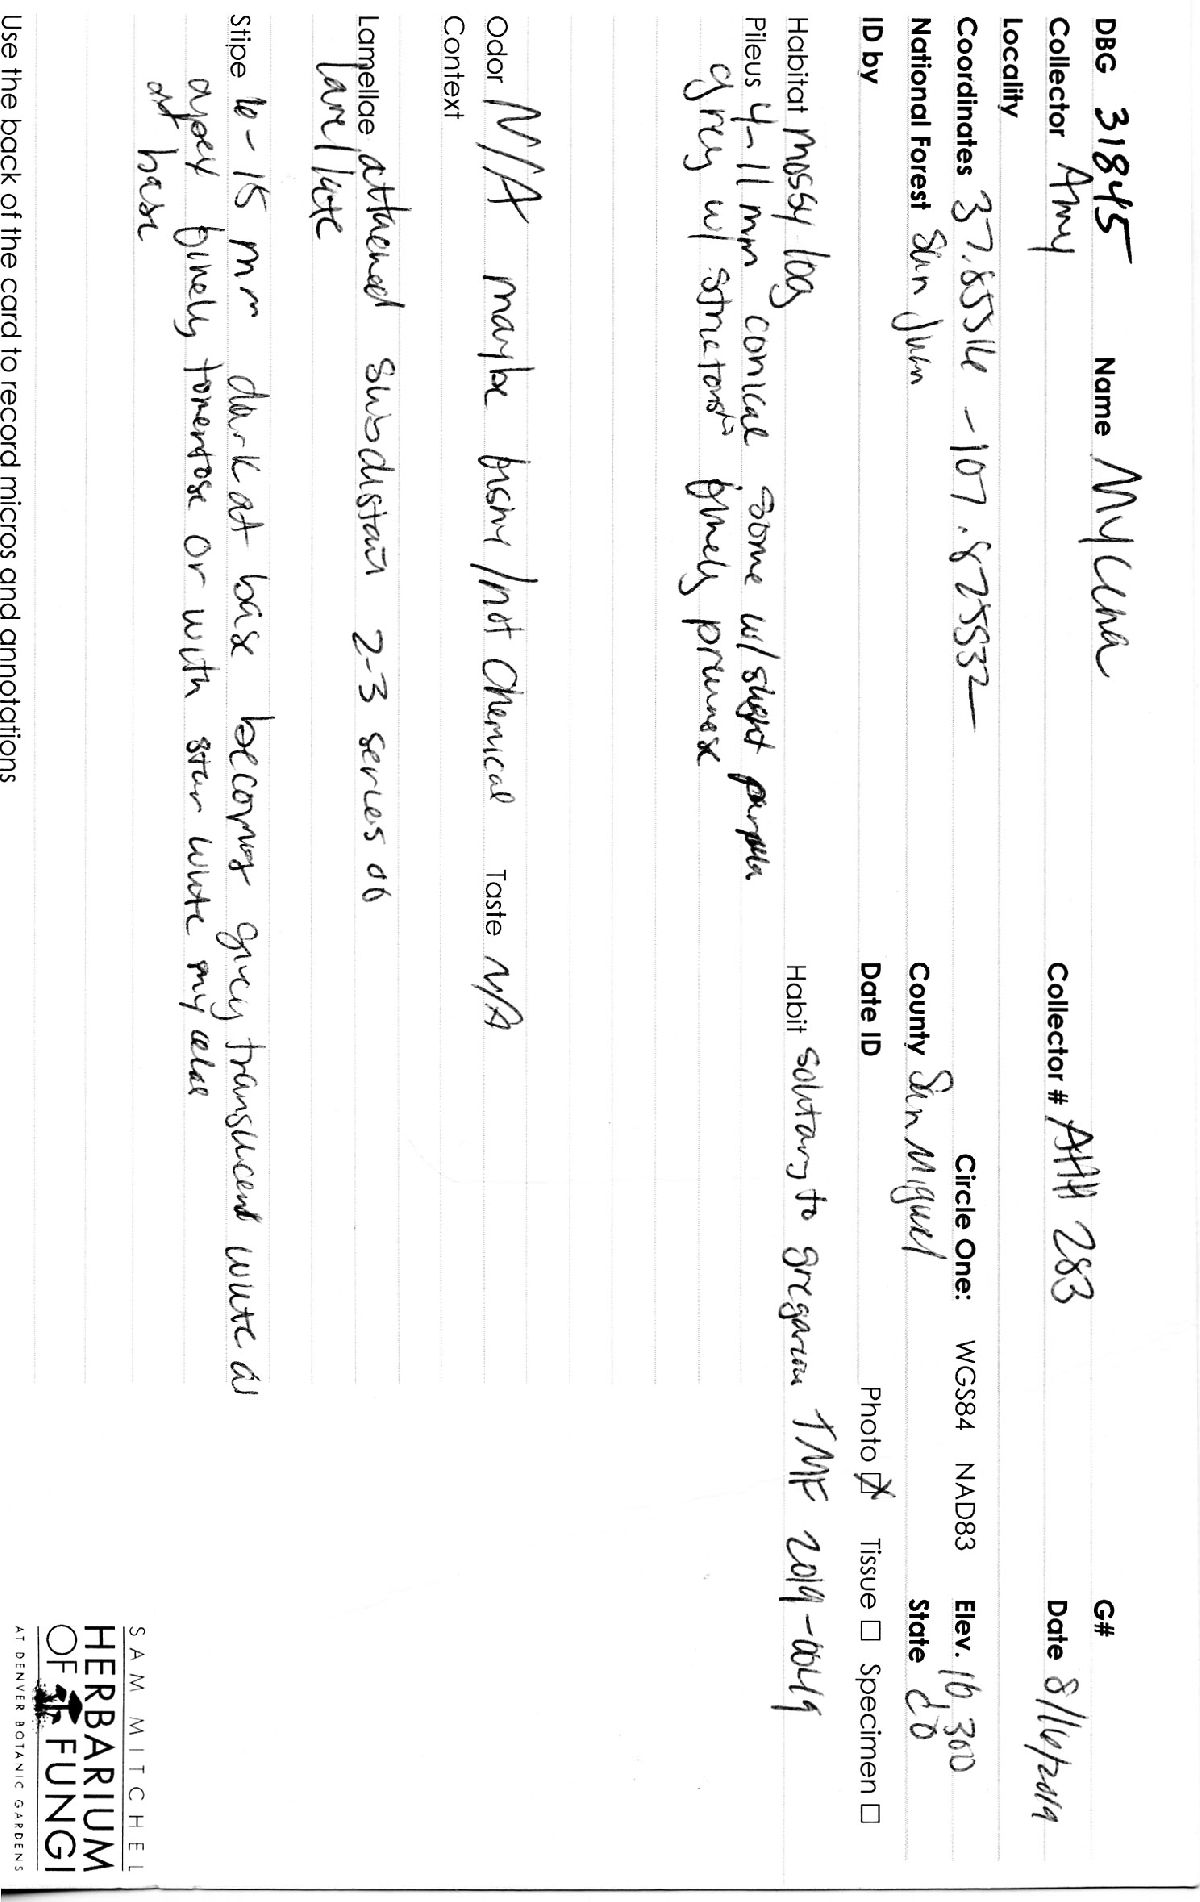 DBG 31845 Name Mycena G#
Collector Amy Collector # AHH 283 Date 8/16/2019
Locality
Coordinates 37.85516 -107.825532 Circle One: WGS84 NAD83 Elev. 10,300
National Forest San Juan County San Miguel State CO
ID by Date ID Photo ☒ Tissue ☐ Specimen ☐
Habitat mossy log Habit solitary to gregarious TMF 2019-0049
Pileus 4-11 mm conical some w/slight
grey w/ finely pruinose
Odor N/A maybe fishy/not chemical Taste N/A
Context
Lamellae attached subdistant 2-3 series of
lamellulae
Stipe 10-15 mm dark at base becoming grey translucent white at
apex finely tomentose or with white mycelia
at base
Use the back of the card to record micros and annotations
SAM MITCHEL
HERBARIUM
OF FUNGI
AT DENVER BOTANIC GARDENS